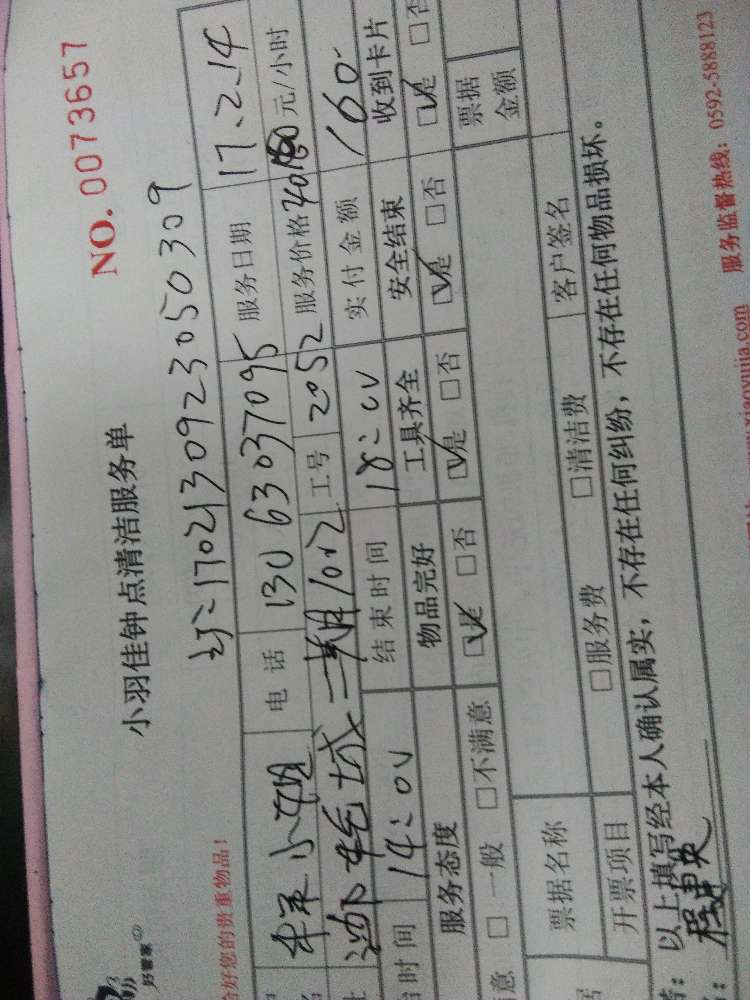 好管家
小羽佳钟点清洁服务单
NO. 0073657
给好您的贵重物品！
1702130923050309
小姐 电话 13063037095 服务日期 17.2.14
工号 2052 服务价格 40 元/小时
始时间 14:00 结束时间 18:00 实付金额 160-
服务态度 物品完好 工具齐全 安全结束 收到卡片
意 □一般 □不满意 ☑是 □否 ☑是 □否 ☑是 □否 ☑是 □否
票据名称 票据金额
开票项目 □服务费 □清洁费 客户签名
以上填写经本人确认属实，不存在任何纠纷，不存在任何物品损坏。
服务监督热线：0592-5888123
www.xiaoyujia.com